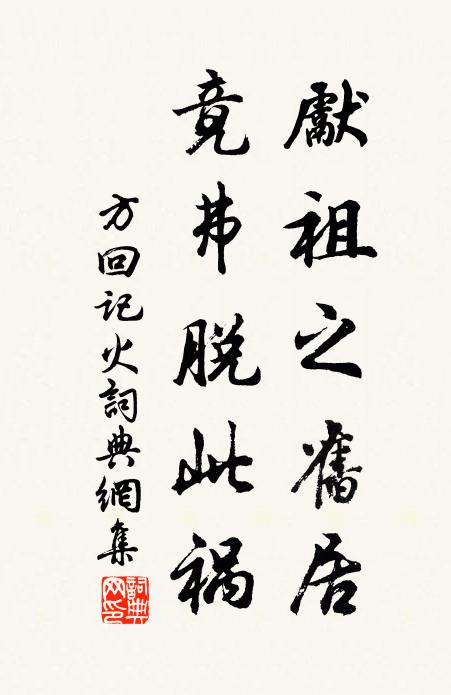 獻祖之舊居
竟弗脫此禍
方回記火詞典網集
詞典网印